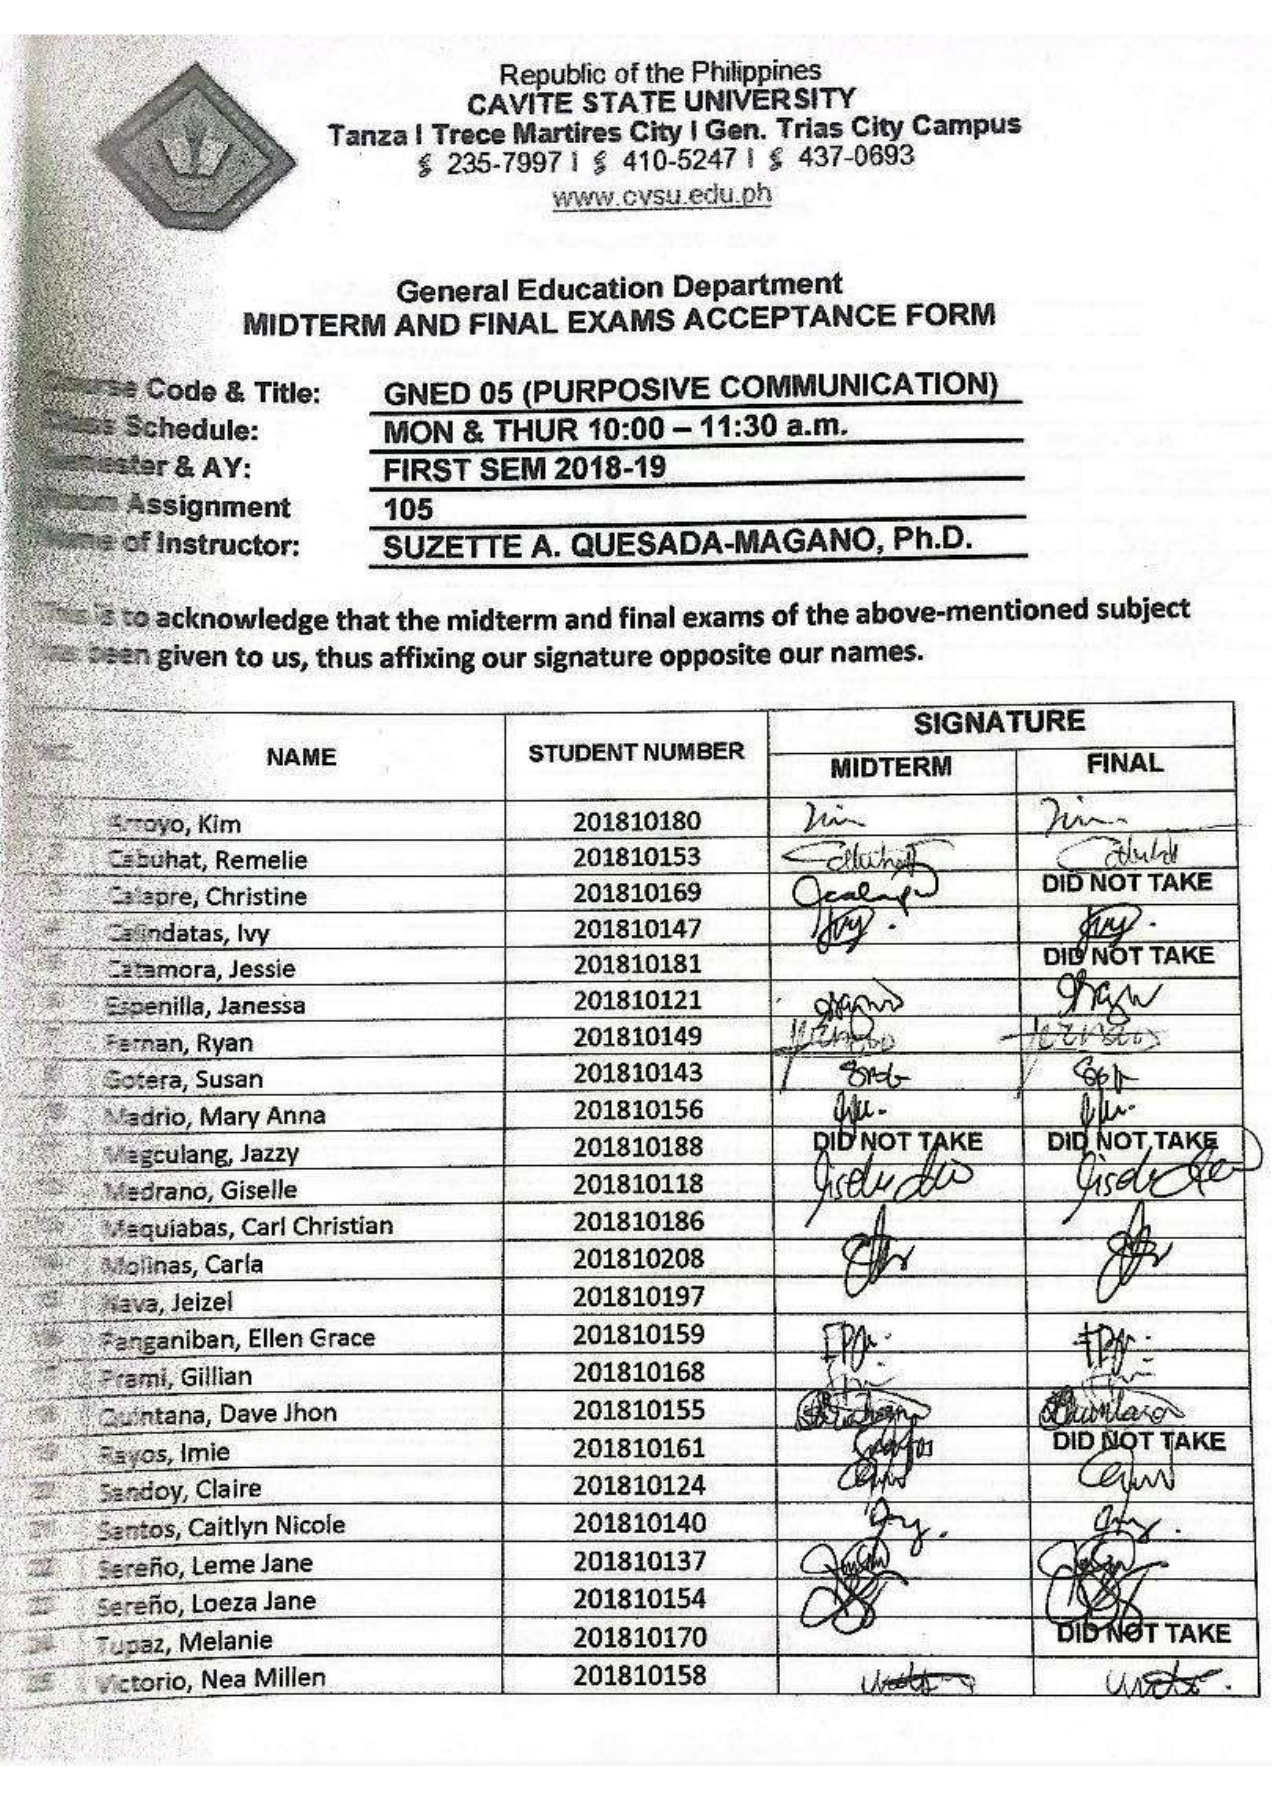 Republic of the Philippines
CAVITE STATE UNIVERSITY
Tanza I Trece Martires City I Gen. Trias City Campus
235-7997 I 410-5247 I 437-0693
www.cvsu.edu.ph
General Education Department
MIDTERM AND FINAL EXAMS ACCEPTANCE FORM
Course Code & Title: GNED 05 (PURPOSIVE COMMUNICATION)
Class Schedule: MON & THUR 10:00 – 11:30 a.m.
Semester & AY: FIRST SEM 2018-19
Room Assignment 105
Name of Instructor: SUZETTE A. QUESADA-MAGANO, Ph.D.
This is to acknowledge that the midterm and final exams of the above-mentioned subject
has been given to us, thus affixing our signature opposite our names.
NAME STUDENT NUMBER SIGNATURE
MIDTERM FINAL
Arroyo, Kim 201810180
Cabuhat, Remelie 201810153
Calapre, Christine 201810169 DID NOT TAKE
Calindatas, Ivy 201810147
Catamora, Jessie 201810181 DID NOT TAKE
Espenilla, Janessa 201810121
Fernan, Ryan 201810149
Gotera, Susan 201810143
Madrio, Mary Anna 201810156
Magculang, Jazzy 201810188 DID NOT TAKE DID NOT TAKE
Medrano, Giselle 201810118
Mequiabas, Carl Christian 201810186
Molinas, Carla 201810208
Nava, Jeizel 201810197
Panganiban, Ellen Grace 201810159
Prami, Gillian 201810168
Quintana, Dave Jhon 201810155
Rayos, Imie 201810161 DID NOT TAKE
Sandoy, Claire 201810124
Santos, Caitlyn Nicole 201810140
22 Sereño, Leme Jane 201810137
23 Sereño, Loeza Jane 201810154
24 Tupaz, Melanie 201810170 DID NOT TAKE
25 Victorio, Nea Millen 201810158